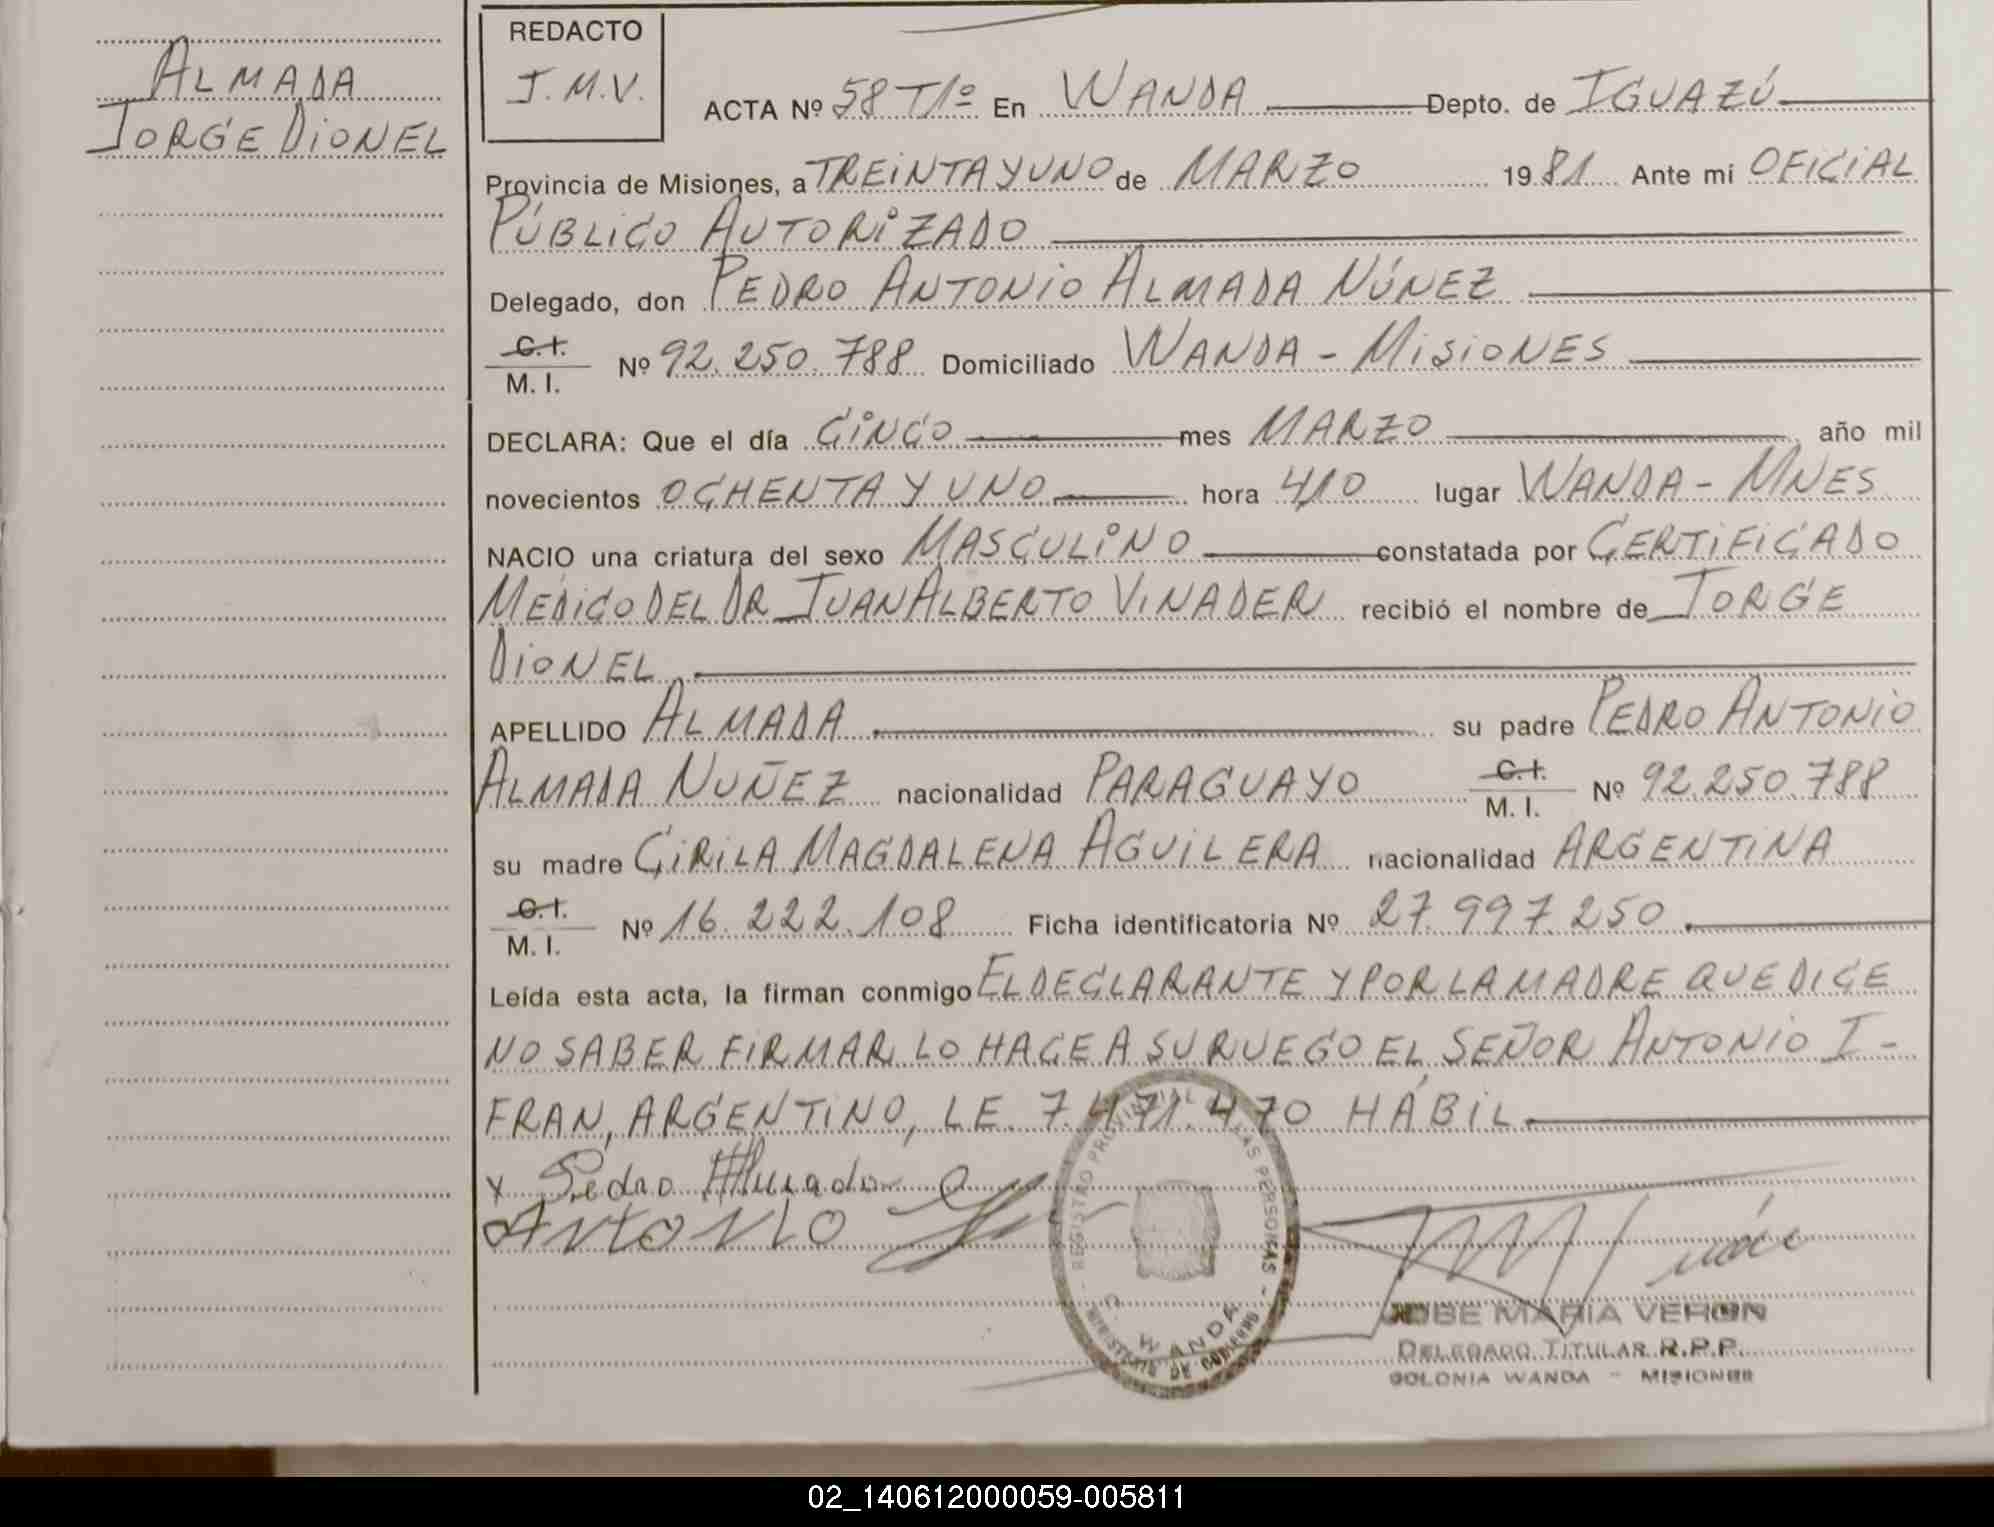 ALMADA
JORGE DIONEL
REDACTO
J.M.V.
ACTA Nº 58 T1º En WANDA Depto. de IGUAZÚ
Provincia de Misiones, a TREINTA Y UNO de MARZO 1981 Ante mi OFICIAL
PÚBLICO AUTORIZADO
Delegado, don PEDRO ANTONIO ALMADA NÚNEZ
C.I.
M. I. Nº 92.250.788 Domiciliado WANDA - MISIONES
DECLARA: Que el día CINCO mes MARZO año mil
novecientos OCHENTA Y UNO hora 4,10 lugar WANDA - MNES
NACIO una criatura del sexo MASCULINO constatada por CERTIFICADO
MEDICO DEL DR JUAN ALBERTO VINADER recibió el nombre de JORGE
DIONEL
APELLIDO ALMADA su padre PEDRO ANTONIO
ALMADA NUÑEZ nacionalidad PARAGUAYO C.I. M. I. Nº 92.250.788
su madre CIRILA MAGDALENA AGUILERA nacionalidad ARGENTINA
C.I.
M. I. Nº 16.222.108 Ficha identificatoria Nº 27.997.250
Leída esta acta, la firman conmigo EL DECLARANTE Y POR LA MADRE QUE DICE
NO SABER FIRMAR LO HACE A SU RUEGO EL SEÑOR ANTONIO I-
FRAN, ARGENTINO, LE. 7.471.470 HÁBIL
x Pedro Almada
Antonio
REGISTRO PROVINCIAL DE LAS PERSONAS
WANDA
MINISTERIO DE GOBIERNO
JOSE MARIA VERON
DELEGADO TITULAR R.P.P.
COLONIA WANDA - MISIONES
02_140612000059-005811